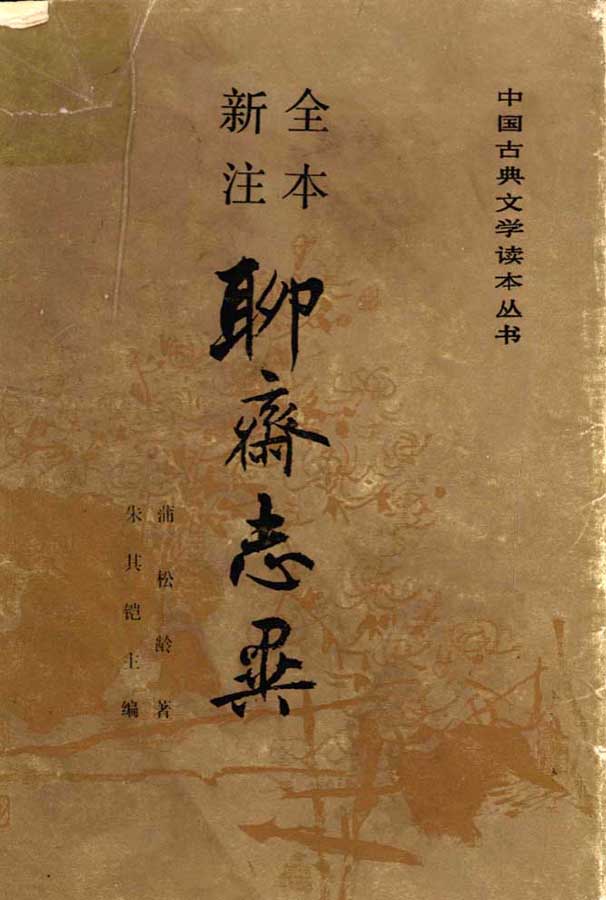 中国古典文学读本丛书
全本
新注
聊齋志異
蒲松龄 著
朱其铠 主编